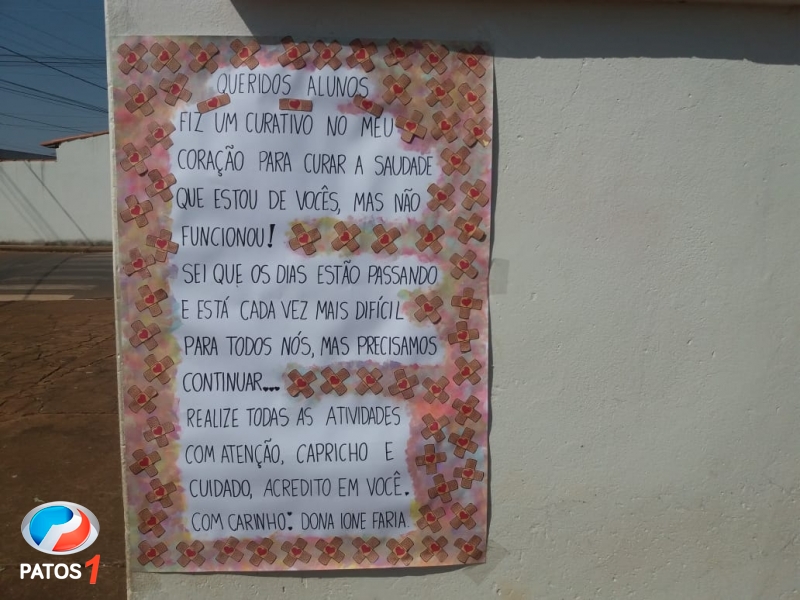 QUERIDOS ALUNOS
FIZ UM CURATIVO NO MEU
CORAÇÃO PARA CURAR A SAUDADE
QUE ESTOU DE VOCÊS, MAS NÃO
FUNCIONOU!
SEI QUE OS DIAS ESTÃO PASSANDO
E ESTÁ CADA VEZ MAIS DIFÍCIL
PARA TODOS NÓS, MAS PRECISAMOS
CONTINUAR...
REALIZE TODAS AS ATIVIDADES
COM ATENÇÃO, CAPRICHO E
CUIDADO, ACREDITO EM VOCÊ.
COM CARINHO: DONA IONE FARIA.
PATOS1